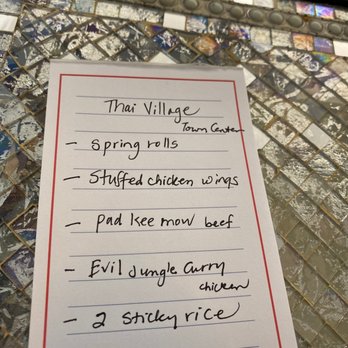 Thai Village
Town Center
- Spring rolls
- Stuffed chicken wings
- pad kee mow beef
- Evil Jungle Curry
chicken
- 2 Sticky rice